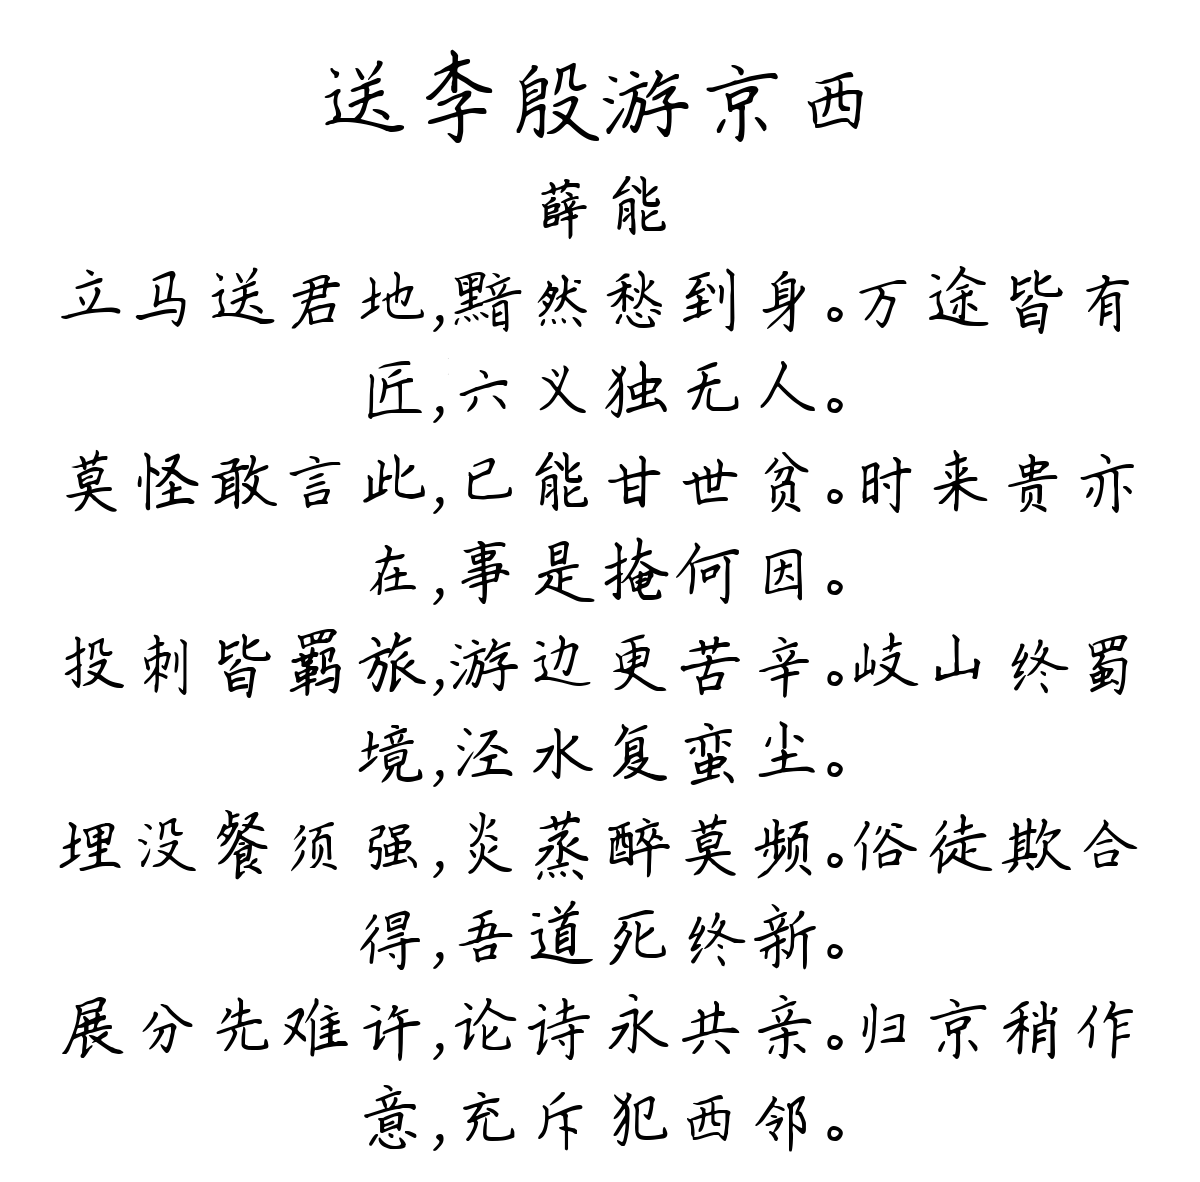 送李殷游京西
薛能
立马送君地,黯然愁到身。万途皆有
匠,六义独无人。
莫怪敢言此,已能甘世贫。时来贵亦
在,事是掩何因。
投刺皆羁旅,游边更苦辛。岐山终蜀
境,泾水复蛮尘。
埋没餐须强,炎蒸醉莫频。俗徒欺合
得,吾道死终新。
展分先难许,论诗永共亲。归京稍作
意,充斥犯西邻。